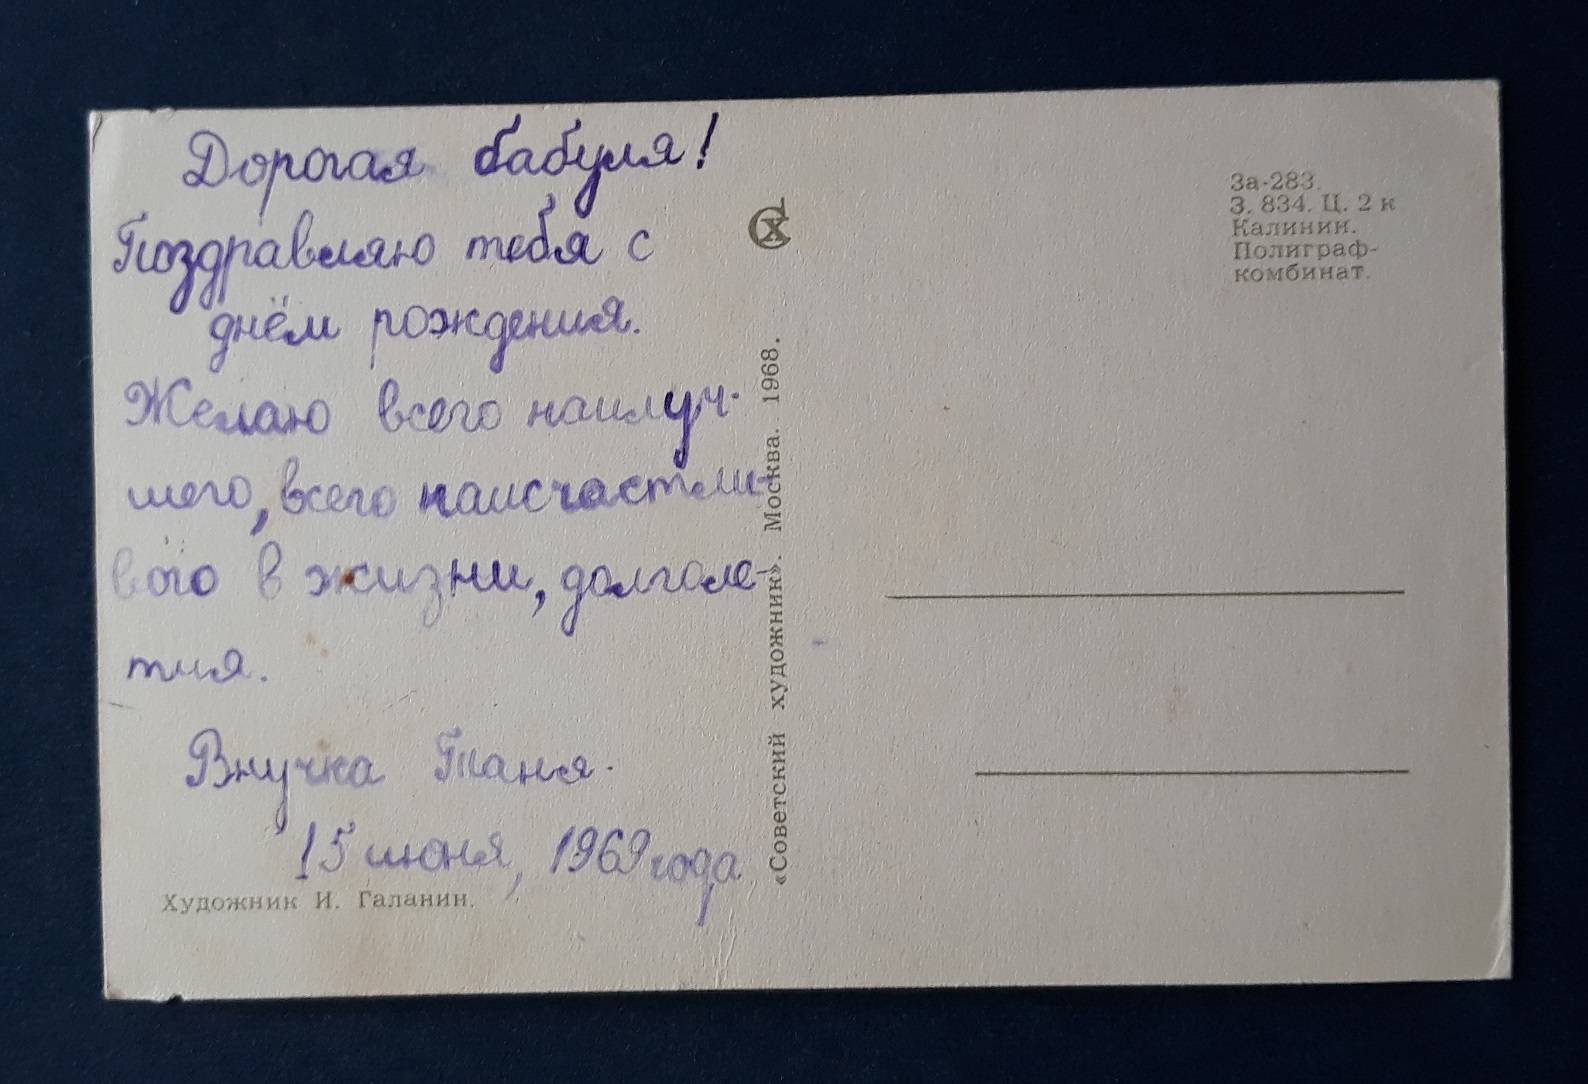 Дорогая бабуля!
Поздравляю тебя с
днём рождения.
Желаю всего наилуч-
шего, всего наисчастли-
вого в жизни, долголе-
тия.
Внучка Таня.
15 июня, 1969 года
Художник И. Галанин.
«Советский художник». Москва. 1968.
СХ
За-283.
З. 834. Ц. 2 к
Калинин.
Полиграф-
комбинат.